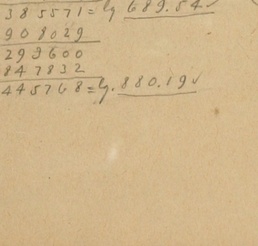 385571 = lg 689.54 ✓
908029
299600
847832
445768 = lg. 880.19 ✓